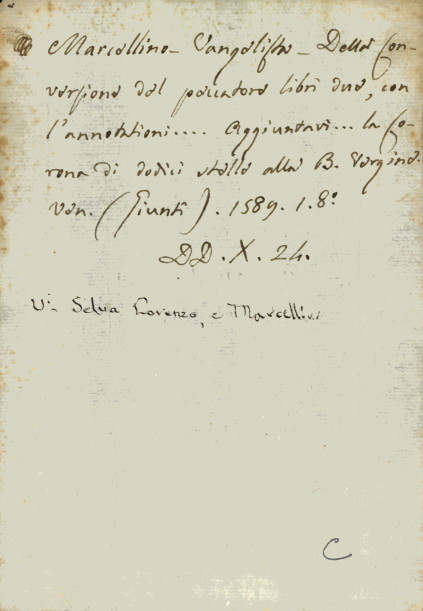 Marcellino - Vangelista - Della Con-
versione del peccatore libri due, con
l'annotationi.... Aggiuntavi... la Co-
rona di dodici stelle alla B. Vergine.
Ven. (Giunti). 1589. 1. 8.º
DD. X. 24.
V.i Selva Lorenzo, e Marcellini
C